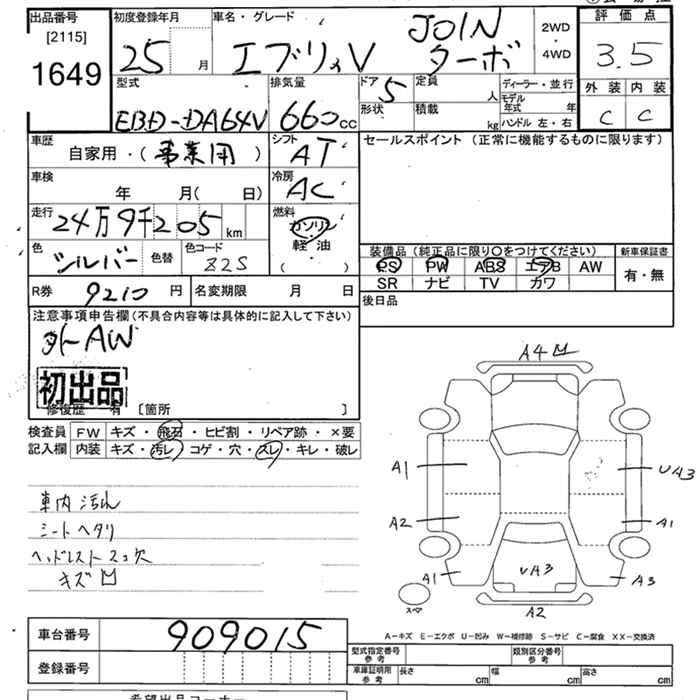 出品番号
[2115]
1649
初度登録年月
25 月
車名・グレード
エブリィV JOIN ターボ
2WD
・
4WD
評価点
3.5
外装 内装
C C
型式
EBD-DA64V
排気量
660 cc
ドア 5
形状
定員 人
積載 kg
ディーラー・並行
モデル年式 年
ハンドル 左・右
車歴
自家用・(事業用)
シフト
AT
車検
年 月( 日)
冷房
AC
走行
24万9千205 km
燃料
ガソリン
軽油
( ・ )
色
シルバー
色替
色コード
Z2S
R券 9210 円
名変期限 月 日
セールスポイント (正常に機能するものに限ります)
装備品(純正品に限り○をつけてください)
新車保証書
PS PW ABS エアB AW
SR ナビ TV カワ
有・無
後日品
注意事項申告欄(不具合内容等は具体的に記入して下さい)
外AW
初出品
修復歴 有 [箇所 ]
検査員 FW キズ・飛石・ヒビ割・リペア跡・×要
記入欄 内装 キズ・汚レ・コゲ・穴・スレ・キレ・破レ
車内汚れ
シートヘタリ
ヘッドレスト 欠
キズ
A4
A1 UA3
A2 A1
A1 UA3 A3
スペア
A2
車台番号 909015
登録番号
A－キズ E－エクボ U－凹み W－補修跡 S－サビ C－腐食 XX－交換済
型式指定番号 参考
類別区分番号 参考
車庫証明用 参考 長さ cm 幅 cm 高さ cm
希望出品コーナー